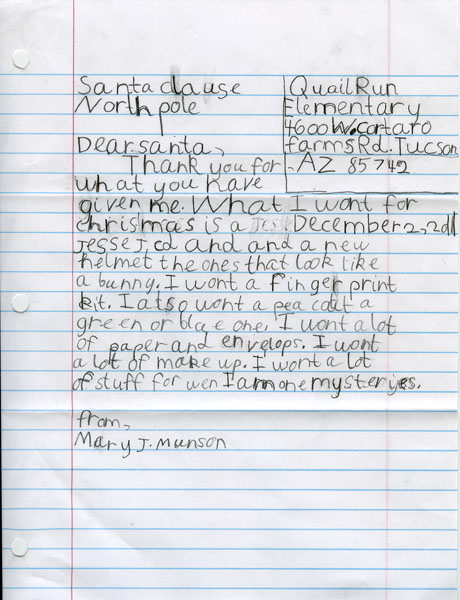 Santa clause
North pole
Quail Run
Elementary
4600 W. cortaro
farms Rd. Tucson
AZ 85742
December 2, 2011
Dear santa,
Thank you for
what you have
given me. What I wont for
christmas is a
jesse J, cd and and a new
helmet the ones that look like
a bunny. I wont a finger print
kit. I also wont a pea coat a
green or blue one. I wont a lot
of paper and envelops. I wont
a lot of make up. I wont a lot
of stuff for wen I am one mysteryes.
from,
Mary J. Munson